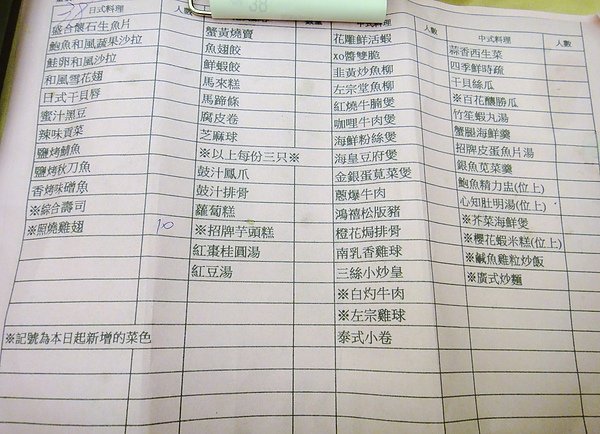 日式料理 人數
盛合懷石生魚片
鮑魚和風蔬果沙拉
鮭卵和風沙拉
和風雪花翅
日式干貝唇
蜜汁黑豆
辣味貢菜
鹽烤鯖魚
鹽烤秋刀魚
香烤味磳魚
※綜合壽司
※照燒雞翅 10
※記號為本日起新增的菜色
38
蟹黃燒賣
魚翅餃
鮮蝦餃
馬來糕
馬蹄條
腐皮卷
芝麻球
※以上每份三只※
鼓汁鳳爪
鼓汁排骨
蘿蔔糕
※招牌芋頭糕
紅棗桂圓湯
紅豆湯
中式料理 人數
花雕鮮活蝦
xo醬雙脆
韭黃炒魚柳
左宗堂魚柳
紅燒牛腩煲
咖哩牛肉煲
海鮮粉絲煲
海皇豆腐煲
金銀蛋莧菜煲
蔥爆牛肉
鴻禧松版豬
橙花焗排骨
南乳香雞球
三絲小炒皇
※白灼牛肉
※左宗雞球
泰式小卷
中式料理 人數
蒜香西生菜
四季鮮時疏
干貝絲瓜
※百花釀勝瓜
竹笙蝦丸湯
蟹腿海鮮羹
招牌皮蛋魚片湯
銀魚莧菜羹
鮑魚精力盅(位上)
心知肚明湯(位上)
※芥菜海鮮煲
※櫻花蝦米糕(位上)
※鹹魚雞粒炒飯
※廣式炒麵